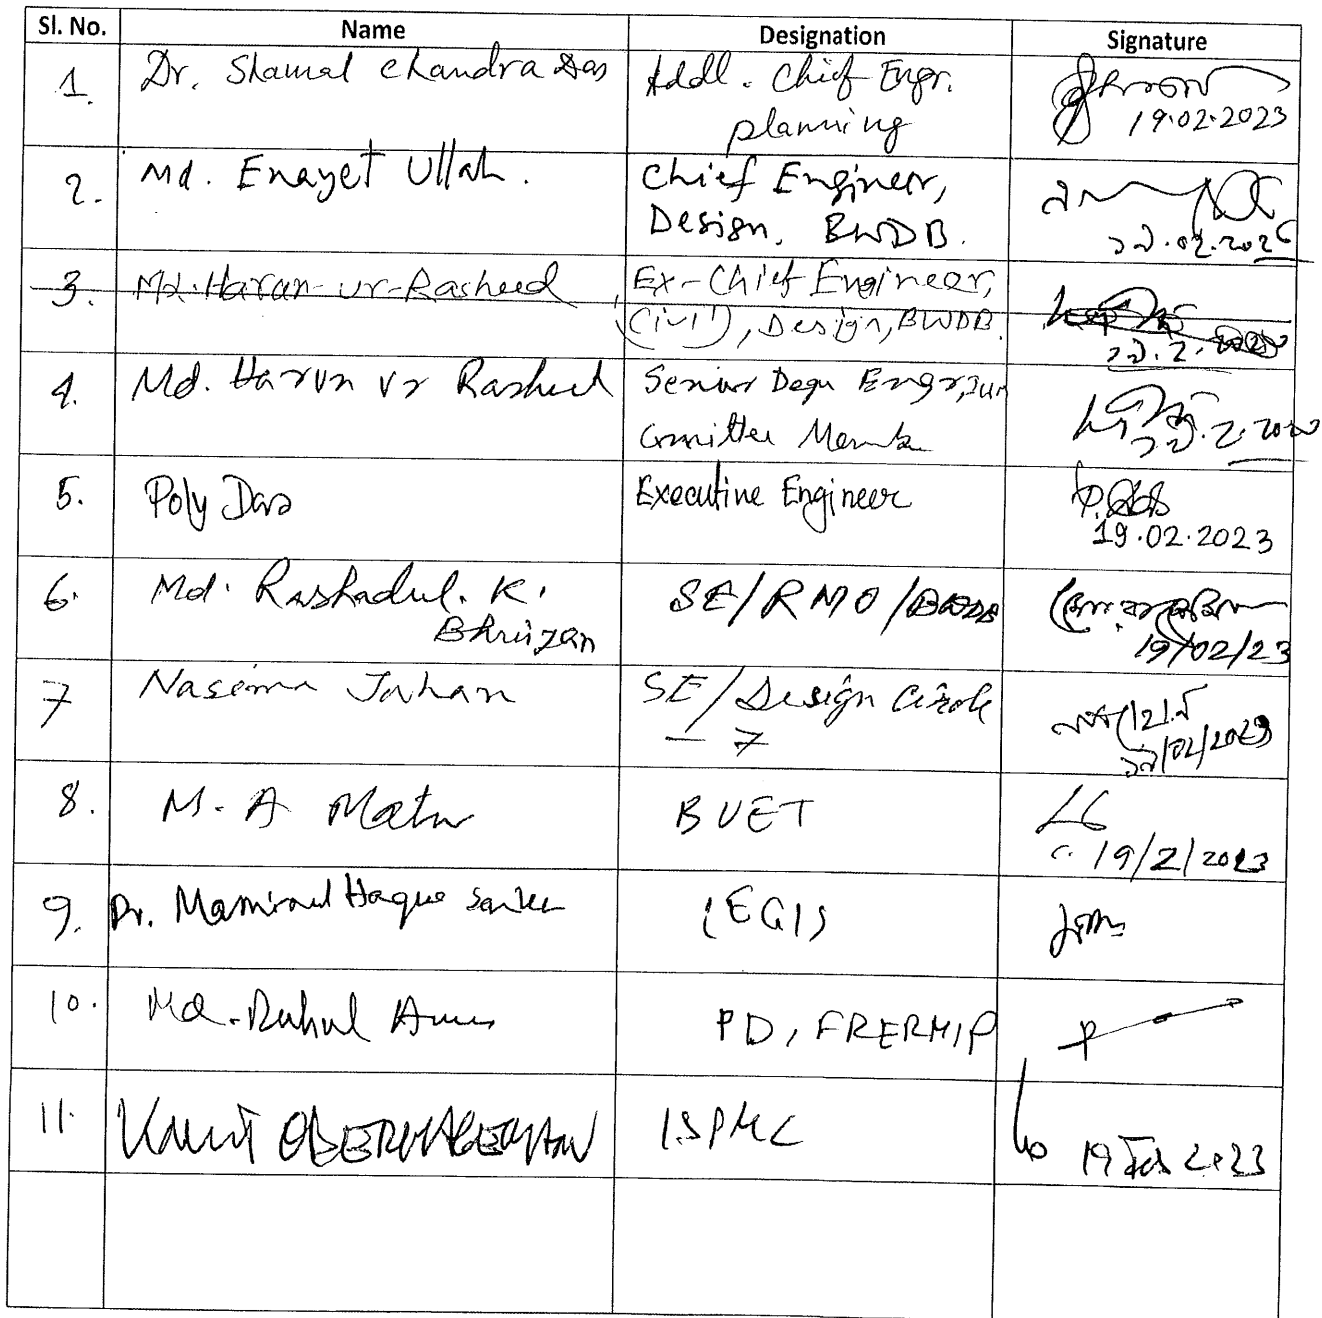 Sl. No. Name Designation Signature
1. Dr. Shamal Chandra Das Addl. Chief Engr.
planning
19.02.2023
2. Md. Enayet Ullah. Chief Engineer,
Design, BWDB.
3. Md. Harun-ur-Rasheed Ex-Chief Engineer,
(Civil), Design, BWDB.
4. Md. Harun ur Rasheed Senior
Committee
5. Poly Das Executive Engineer P. Das
19.02.2023
6. Md. Rashadul. K.
Bhuiyan
SE/RMO/BWDB
19/02/23
7 Nasima Jahan SE/Design Circle
— 7
8. M. A Matin BUET
19/2/2023
9. Dr. Maminul Haque Sarker CEGIS
10. Md. Ruhul Amin PD, FRERMIP
11. KNUT OBERHAGEMANN ISPMC
19 Feb 2023